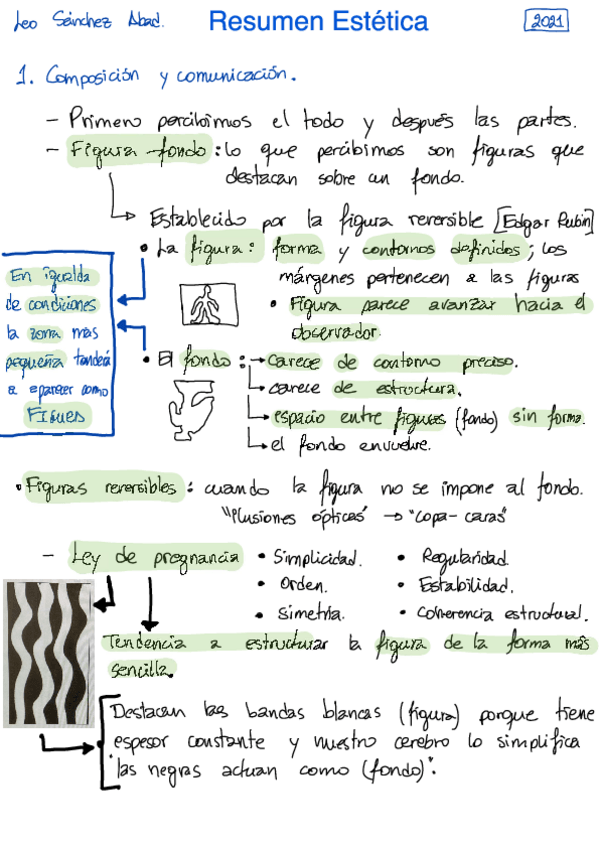 Leo Sánchez Abad.
Resumen Estética
2021
1. Composición y comunicación.
- Primero percibimos el todo y después las partes.
- Figura-fondo: lo que percibimos son figuras que
destacan sobre un fondo.
Establecido por la figura reversible [Edgar Rubin]
• La figura: forma y contornos definidos; los
márgenes pertenecen a las figuras
• Figura parece avanzar hacia el
observador.
En igualda
de condiciones
la zona más
pequeña tenderá
a aparecer como
Figura
• El fondo: → Carece de contorno preciso.
→ carece de estructura.
→ espacio entre figuras (fondo) sin forma.
→ el fondo envuelve.
• Figuras reversibles: cuando la figura no se impone al fondo.
"Ilusiones ópticas" → "copa-caras"
- Ley de pregnancia • Simplicidad. • Regularidad
• Orden. • Estabilidad.
• Simetría. • Coherencia estructural.
Tendencia a estructurar la figura de la forma más
sencilla.
Destacan las bandas blancas (figura) porque tiene
espesor constante y nuestro cerebro lo simplifica
"las negras actuan como (fondo)".